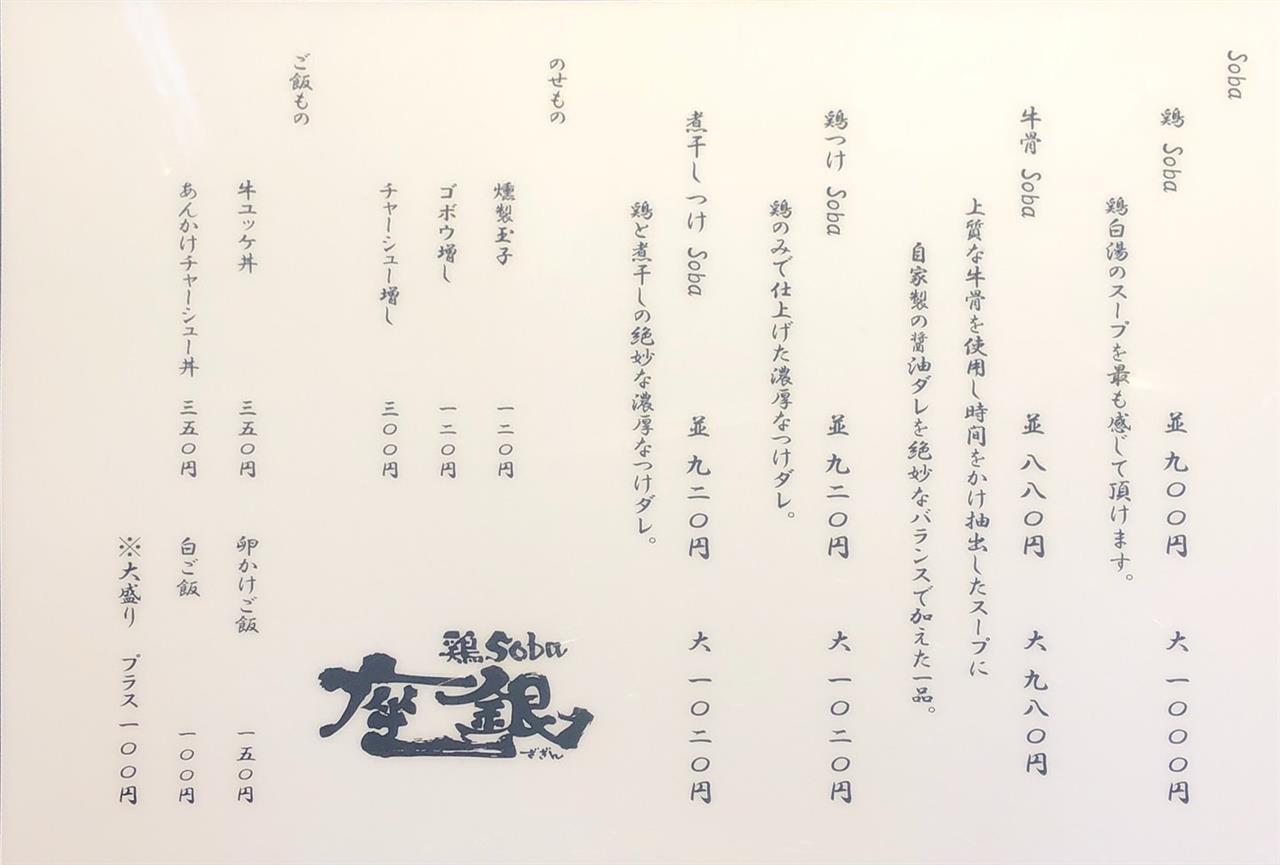 Soba
鶏 Soba 並 九〇〇円 大 一〇〇〇円
鶏白湯のスープを最も感じて頂けます。
牛骨 Soba 並 八八〇円 大 九八〇円
上質な牛骨を使用し時間をかけ抽出したスープに
自家製の醤油ダレを絶妙なバランスで加えた一品。
鶏つけ Soba 並 九二〇円 大 一〇二〇円
鶏のみで仕上げた濃厚なつけダレ。
煮干しつけ Soba 並 九二〇円 大 一〇二〇円
鶏と煮干しの絶妙な濃厚なつけダレ。
のせもの
燻製玉子 一二〇円
ゴボウ増し 一二〇円
チャーシュー増し 三〇〇円
ご飯もの
牛ユッケ丼 三五〇円 卵かけご飯 一五〇円
あんかけチャーシュー丼 三五〇円 白ご飯 一〇〇円
※大盛り プラス一〇〇円
鶏Soba
座銀
ざぎん